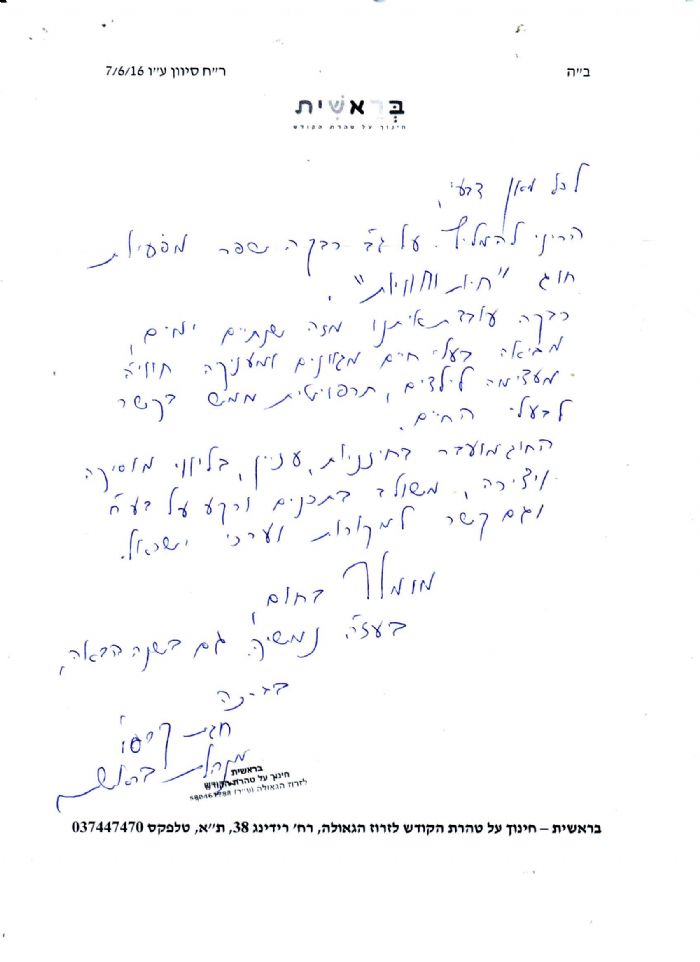 ב"ה
ר"ח סיוון ע"ו 7/6/16
בְּרֵאשִׁית
חינוך על טהרת הקודש
לכל מאן דבעי,
הריני להמליץ על גב' רבקה שפר מפעילת
חוג "חיות וחוויות".
רבקה עובדת איתנו מזה שנתיים ימים,
מביאה בעלי חיים מגוונים ומעניקה חוויה
מעצימה לילדים, תרפויטית ממש בקשר
לבעלי החיים.
החוג מועבר בחינניות, עניין, בליווי מוסיקה
ויצירה, משולב בתכנים ורקע על בע"ח
וגם קשר למקורות וערכי ישראל.
מומלץ בחום,
בעז"ה נמשיך גם בשנה הבאה,
בברכה
חגית
מנהלת בראשית
בראשית
חינוך על טהרת הקודש
לזרוז הגאולה (ע"ר)
בראשית – חינוך על טהרת הקודש לזרוז הגאולה, רח' רידינג 38, ת"א, טלפקס 037447470